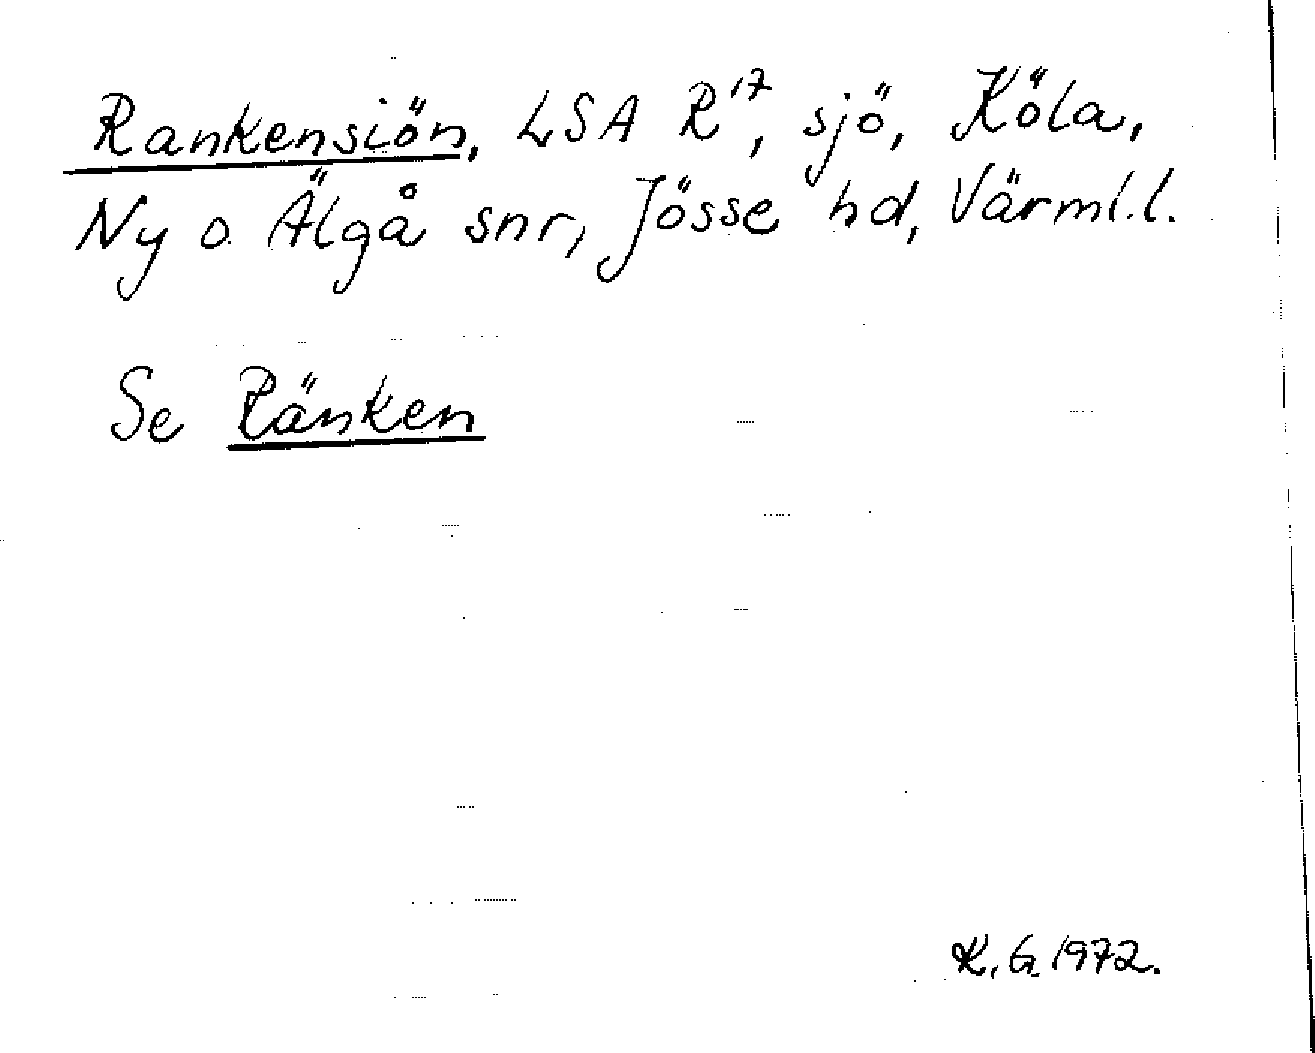 Rankensiön, LSA R¹⁷, sjö, Köla,
Ny o. Älgå snr, Jösse hd, Värml.l.
Se Ränken
K.G. 1972.